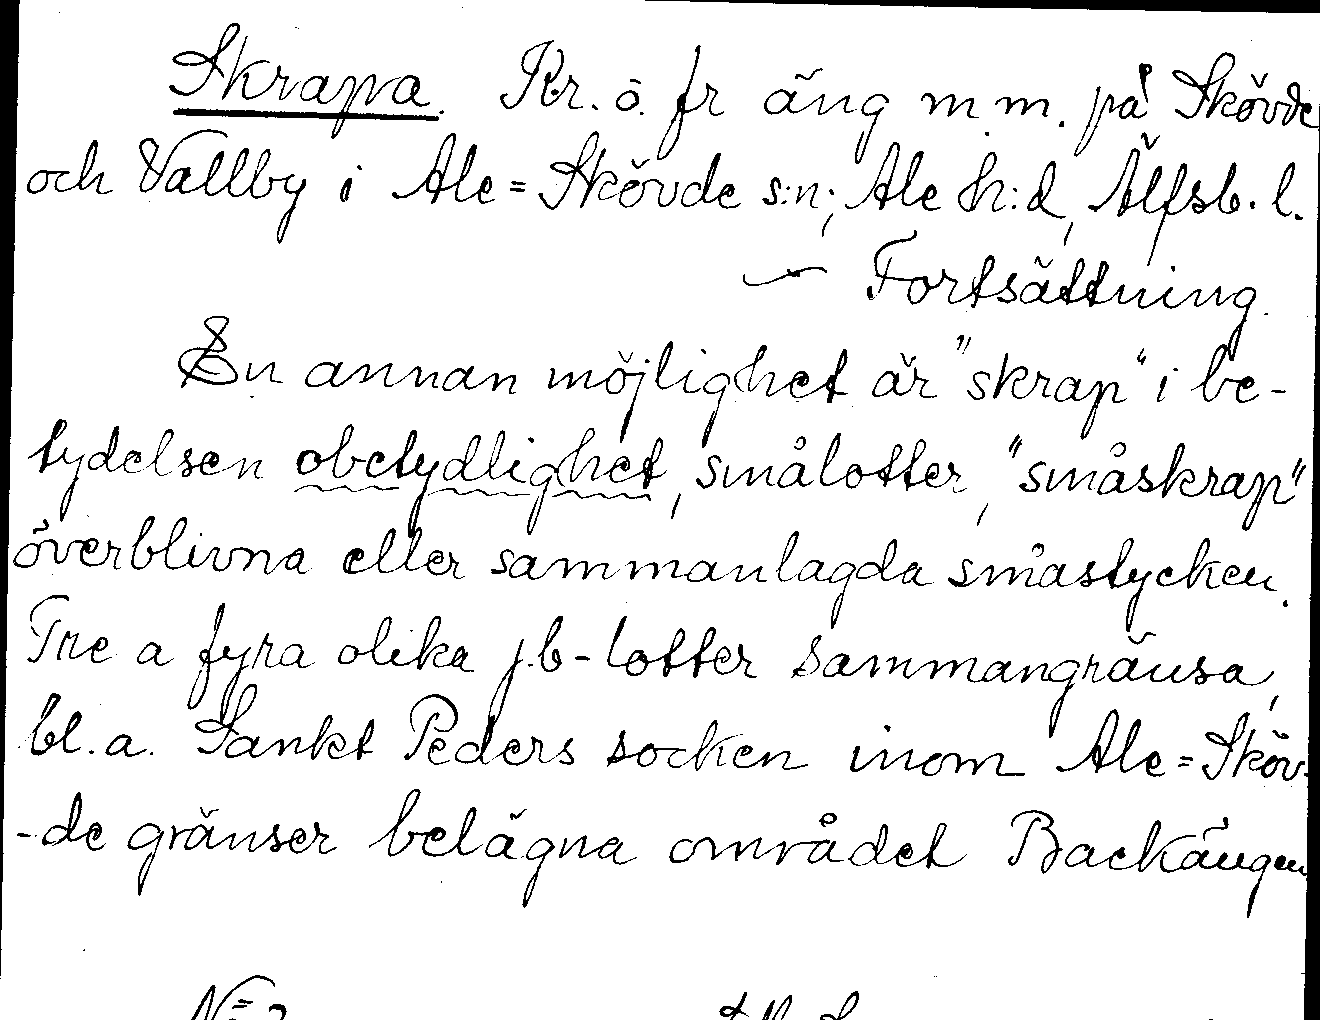 Skrapa. Kr. ö. fr äng m.m. på Skövde
och Vallby i Ale=Skövde s:n, Ale h:d, Älfsb. l.
— Fortsättning.
En annan möjlighet är "skrap" i be-
tydelsen obetydlighet, smålotter, "småskrap"
överblivna eller sammanlagda småstycken.
Tre a fyra olika j.b-lotter sammangränsa,
bl.a. Sankt Peders socken inom Ale=Sköv-
-de gränser belägna området Backängen
№ 2